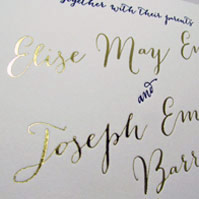 together with their parents
Elise May
and
Joseph